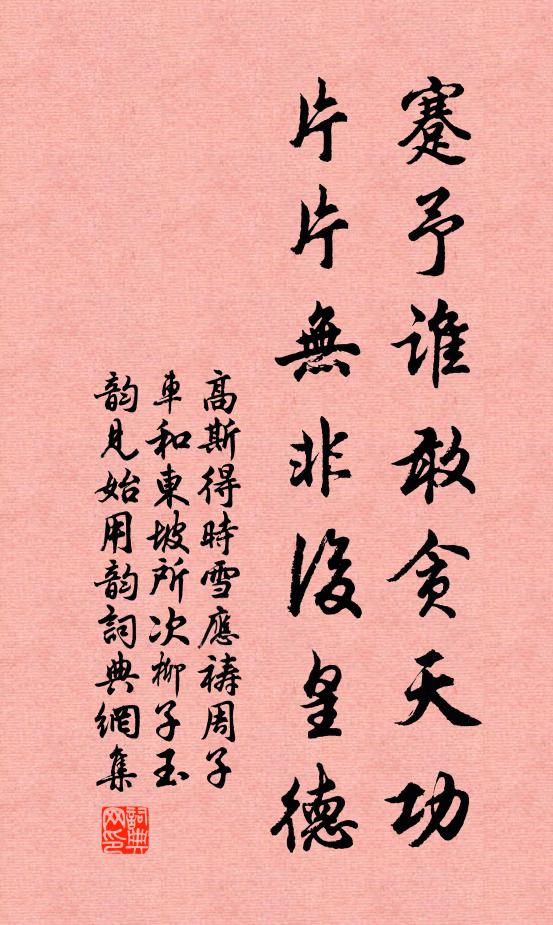 蹇予誰敢貪天功
片片無非後皇德
高斯得時雪應禱周子
車和東坡所次柳子玉
韵見始用韵詞典網集
詞典
网印